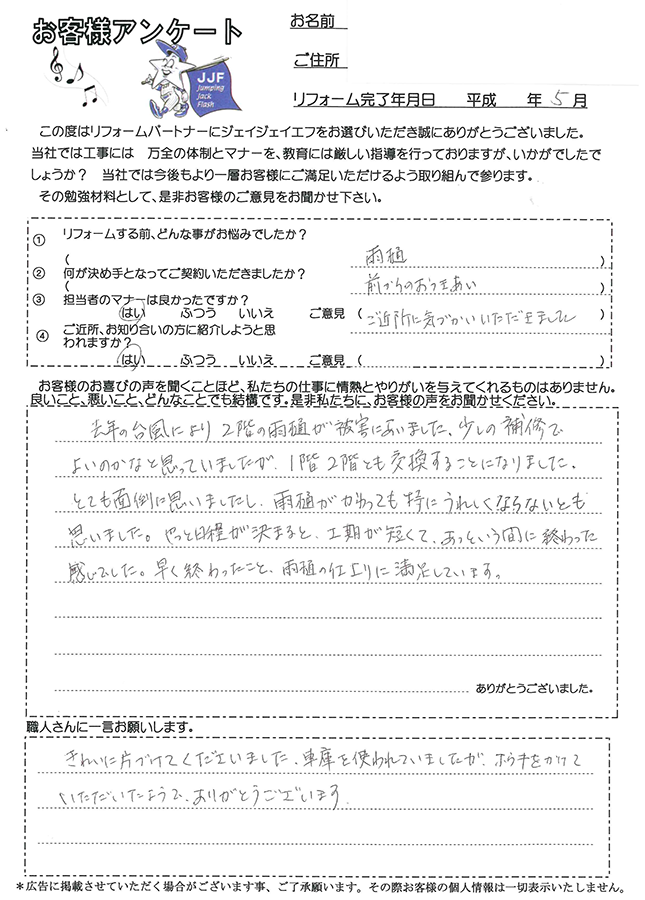 お客様アンケート
JJF
Jumping
Jack
Flash
お名前
ご住所
リフォーム完了年月日 平成 年 5 月
この度はリフォームパートナーにジェイジェイエフをお選びいただき誠にありがとうございました。
当社では工事には 万全の体制とマナーを、教育には厳しい指導を行っておりますが、いかがでしたで
しょうか？ 当社では今後もより一層お客様にご満足いただけるよう取り組んで参ります。
その勉強材料として、是非お客様のご意見をお聞かせ下さい。
① リフォームする前、どんな事がお悩みでしたか？
( 雨樋 )
② 何が決め手となってご契約いただきましたか？
( 前からのおつきあい )
③ 担当者のマナーは良かったですか？
はい ふつう いいえ ご意見 ( ご近所に気づかいいただきました )
④ ご近所、お知り合いの方に紹介しようと思
われますか？
はい ふつう いいえ ご意見 ( )
お客様のお喜びの声を聞くことほど、私たちの仕事に情熱とやりがいを与えてくれるものはありません。
良いこと、悪いこと、どんなことでも結構です。是非私たちに、お客様の声をお聞かせください。
去年の台風により2階の雨樋が被害にあいました、少しの補修で
よいのかなと思っていましたが、1階2階とも交換することになりました、
とても面倒に思いましたし、雨樋がかわっても特にうれしくならないとも
思いました。やっと日程が決まると、工期が短くて、あっという間に終わった
感じでした。早く終わったこと、雨樋の仕上りに満足しています。
ありがとうございました。
職人さんに一言お願いします。
きれいに片づけてくださいました、車庫を使われていましたが、ホウキをかけて
いただいたようで、ありがとうございます
＊広告に掲載させていただく場合がございます事、ご了承願います。その際お客様の個人情報は一切表示いたしません。